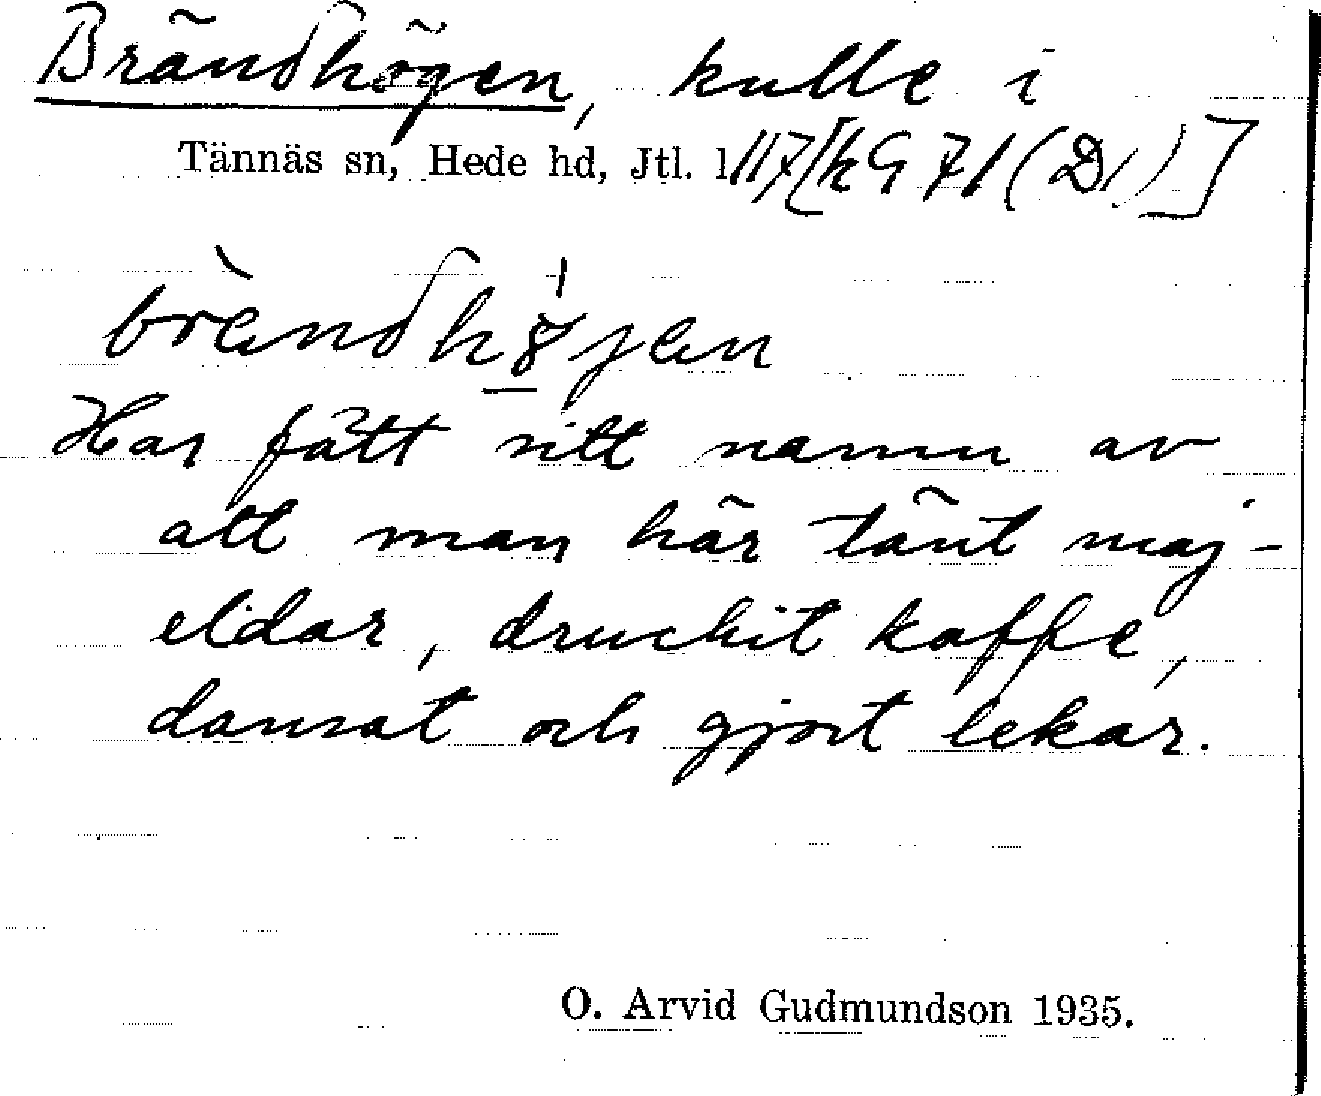 Brändhögen, kulle i
Tännäs sn, Hede hd, Jtl. l 117/[kG 71 (D1)]
brændhǫ̈jæn
Har fått sitt namn av
att man här tänt maj-
eldar, druckit kaffe,
dansat och gjort lekar.
O. Arvid Gudmundson 1935.